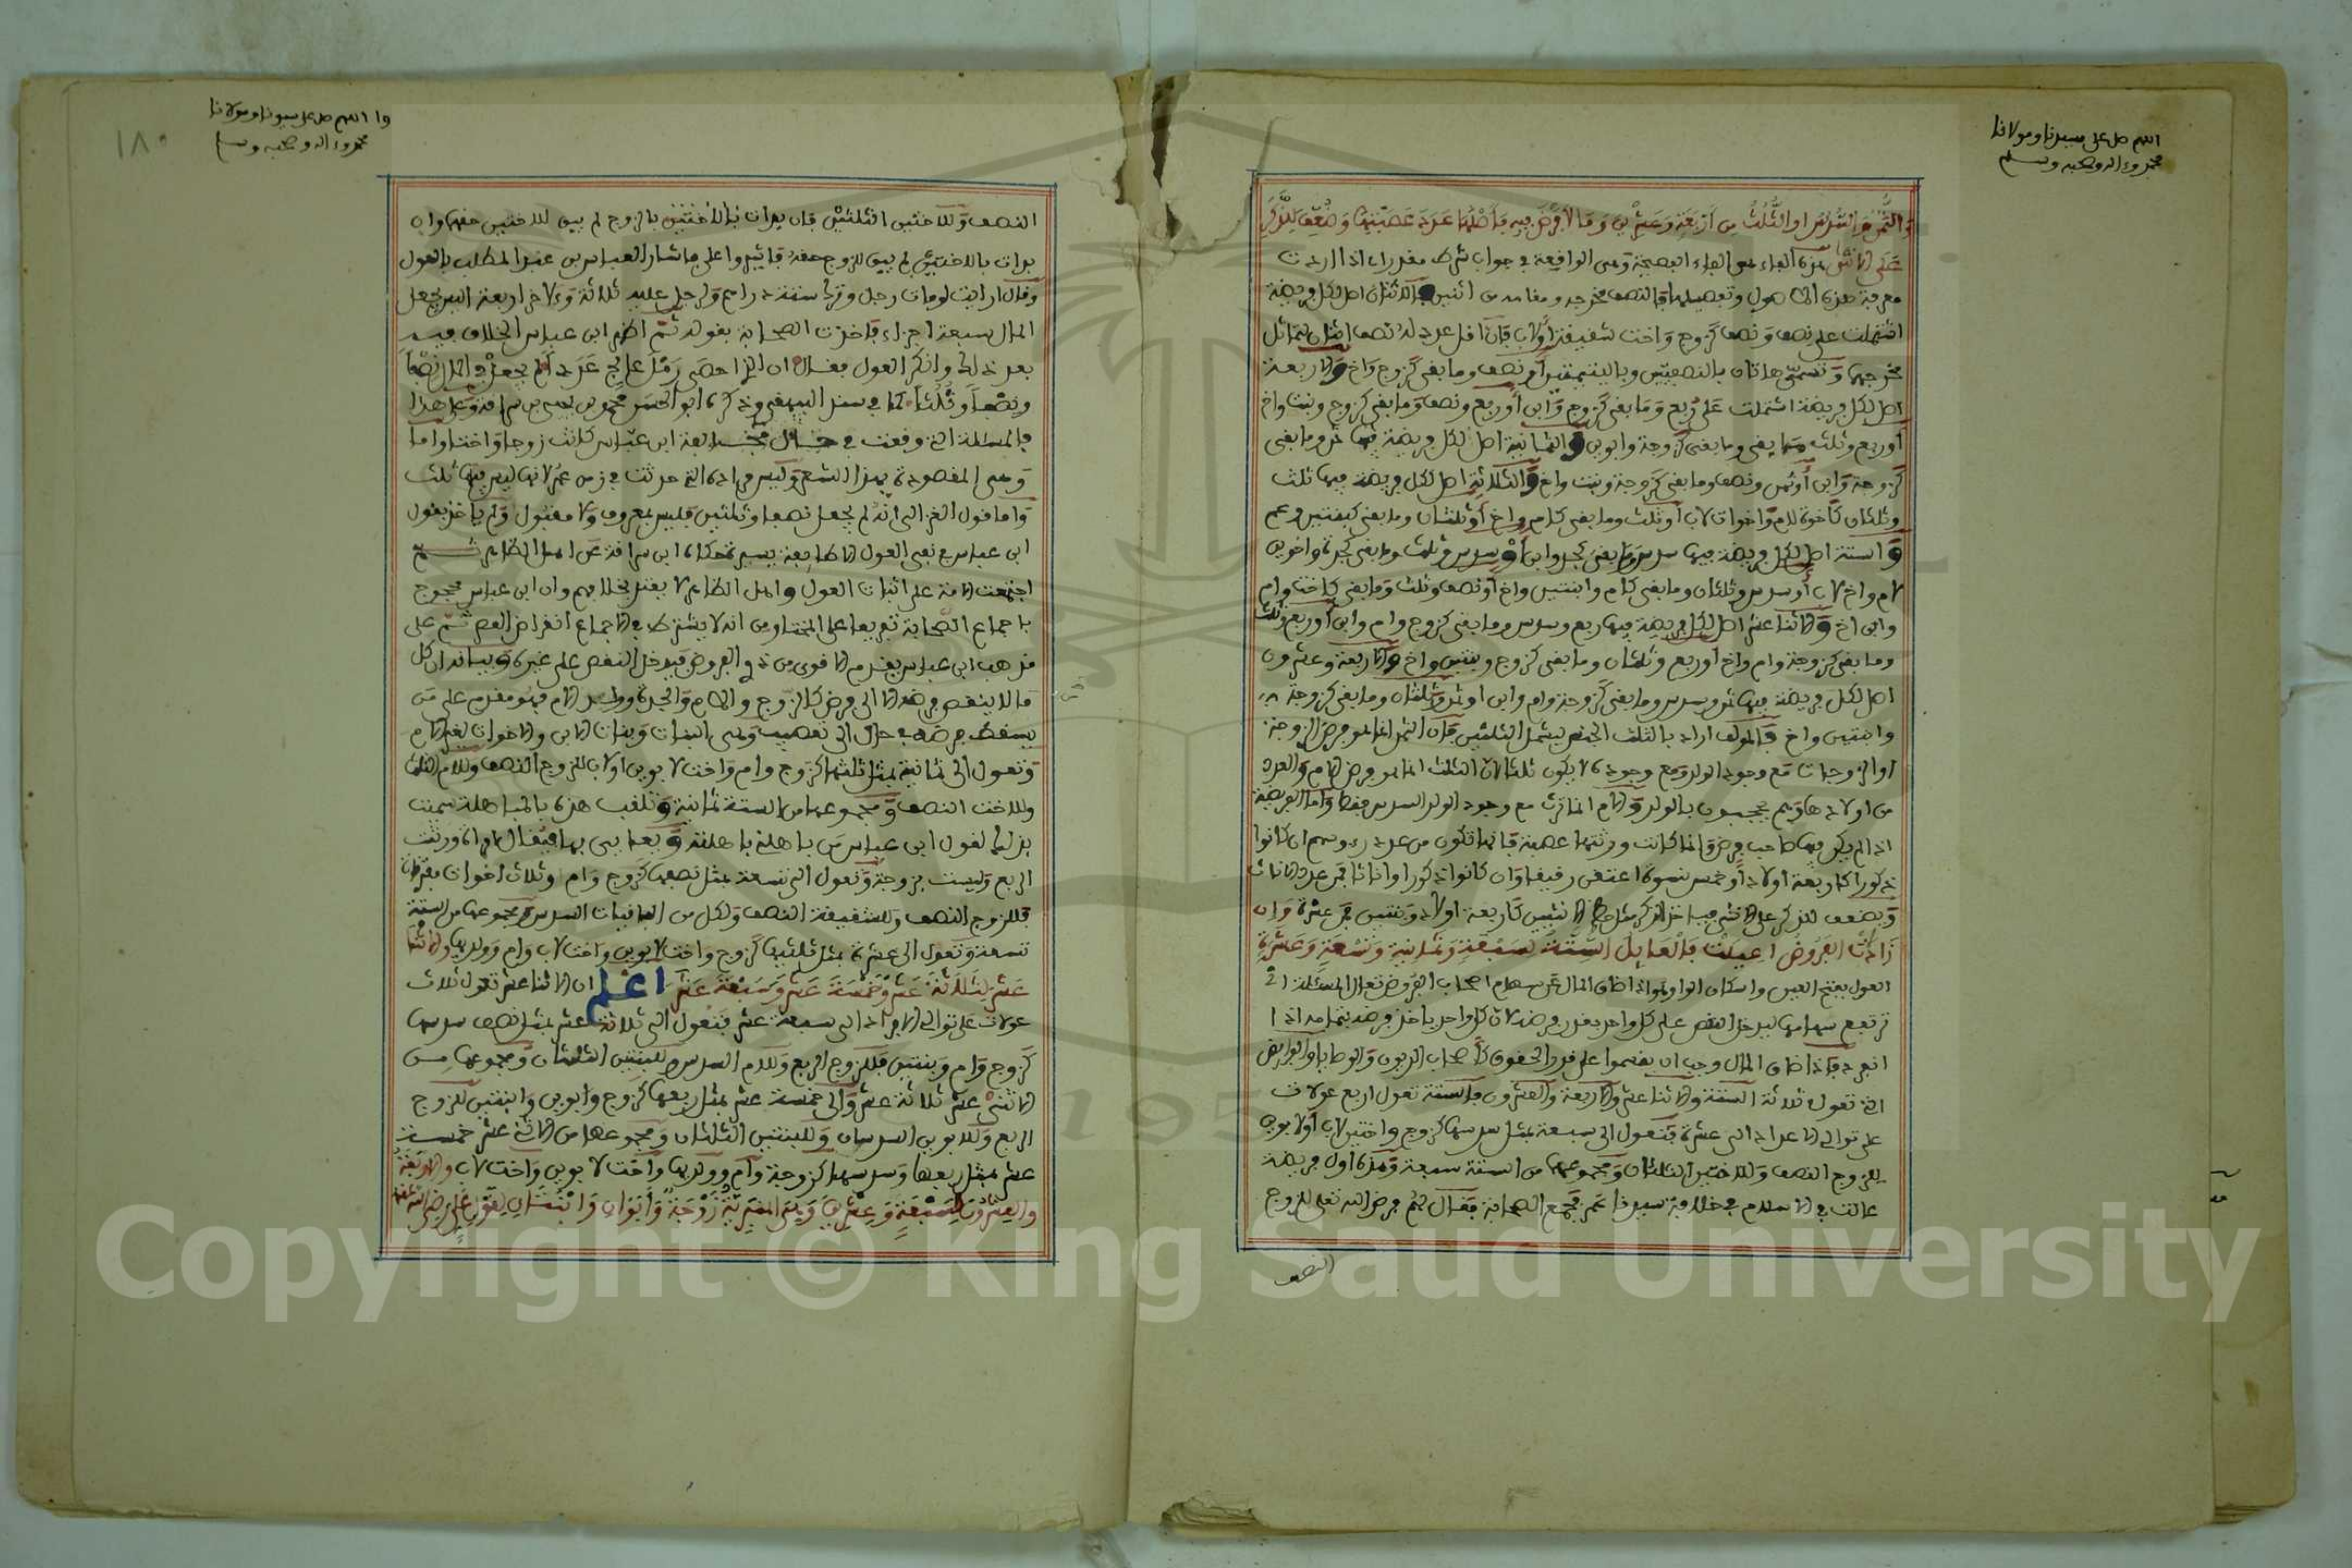 اللهم صل على سيدنا ومولانا
محمد وءاله وصحبه وسلم
والثمن والسدس او الثلث من أربعة وعشرين وما لا فرض فيه فأصلها عدد عصبتها وضعف للذكر
على الانثى هذه الفاء هي الفاء الفصيحة وهي الواقعة في جواب شرط مقدر اي اذا اردت
معرفة هذه الاصول وتفصيلها فالنصف مخرجه ومقامه من اثنين فالاثنان اصل لكل فريضة
اشتملت على نصف ونصف كزوج واخت شقيقة او لاب فان اقل عدد له نصف اثنان لتماثل
مخرجيهما وتسمى هاتان بالنصفيتين وباليتيمتين او نصف وما بقي كزوج واخ والاربعة
اصل لكل فريضة اشتملت على ربع وما بقي كزوج وابن او ربع ونصف وما بقي كزوج وبنت واخ
او ربع وثلث ما بقي وما بقي كزوجة وابوين والثمانية اصل لكل فريضة فيها ثمن وما بقي
كزوجة وابن او ثمن ونصف وما بقي كزوجة وبنت واخ والثلاثة اصل لكل فريضة فيها ثلث
وثلثان كاخوة لام واخوات لاب او ثلث وما بقي كام واخ او ثلثان وما بقي كبنتين وعم
والستة اصل لكل فريضة فيها سدس وما بقي كجد وابن او سدس وثلث وما بقي كجدة واخوين
لام واخ لاب او سدس وثلثان وما بقي كام وابنتين واخ او نصف وثلث وما بقي كاخت وام
وابن اخ والاثنا عشر اصل لكل فريضة فيها ربع وسدس وما بقي كزوج وام وابن او ربع وثلث
وما بقي كزوجة وام واخ او ربع وثلثان وما بقي كزوج وبنتين واخ والاربعة وعشرون
اصل لكل فريضة فيها ثمن وسدس وما بقي كزوجة وام وابن او ثمن وثلثان وما بقي كزوجة
وابنتين واخ فالمؤلف اراد بالثلث الجنس ليشمل الثلثين فان الثمن انما هو فرض الزوجة
او الزوجات مع وجود الولد ومع وجوده لا يكون ثلث لان الثلث انما هو فرض الام والعدد
من اولادها وهم يحجبون بالولد والام انما ترث مع وجود الولد السدس فقط واما الفريضة
اذا لم يكن فيها صاحب فرض وانما كانت ورثتها عصبة فانما تكون من عدد رءوسهم ان كانوا
ذكورا كاربعة اولاد او خمس نسوة اعتقن رقيقا وان كانوا ذكورا واناثا فمن عدد الاناث
ويضعف للذكر على الانثى فياخذ الذكر مثل حظ الانثيين كاربعة اولاد وبنتين فمن عشرة وان
زادت الفروض اعيلت فالعائل الستة لسبعة وثمانية وتسعة وعشرة
العول بفتح العين واسكان الواو هو اذا ضاق المال عن سهام اصحاب الفروض تعال المسئلة اي
ترتفع سهامها ليدخل النقص على كل واحد بقدر فرضه لان كل واحد ياخذ فرضه بتمامه اذا
انفرد فاذا ضاق المال وجب ان يقسموا على قدر الحقوق كاصحاب الديون والوصايا والفرائض
التي تعول ثلاثة الستة والاثنا عشر والاربعة والعشرون فالستة تعول اربع عولات
على توالي الاعداد الى عشرة فتعول الى سبعة بمثل سدسها كزوج واختين لاب او لابوين
للزوج النصف وللاختين الثلثان ومجموعهما من الستة سبعة وهذه اول فريضة
عالت في الاسلام في خلافة سيدنا عمر فجمع الصحابة فقال لهم فرض الله تعلى للزوج
النصف
وا اللهم صل على سيدنا ومولانا
محمد وءاله وصحبه وسلم
١٨٠
النصف وللاختين الثلثين فان بدات بالاختين بالزوج لم يبق للاختين حقهما وان
بدات بالاختين لم يبق للزوج حقه فاشيروا علي فاشار العباس بن عبد المطلب بالعول
وقال ارايت لو مات رجل وترك ستة دراهم ولرجل عليه ثلاثة وءلاخر اربعة اليس يجعل
المال سبعة اجزاء فاخذت الصحابة بقوله ثم اظهر ابن عباس الخلاف فيه
بعد ذلك وانكر العول فقال ان الذي احصى رمل عالج عددا لم يجعل في المال نصفا
ونصفا وثلثا كما في سنن البيهقي وذكره ابو الحسن محمد بن يحيى بن سراقة وعلى هذا
فالمسئلة التي وقعت في مخالفة ابن عباس كانت زوجا واختا واما
وهي المقصودة بهذا الشعر وليس مراده التي حدثت في زمن عمر لانها ليس فيها ثلث
واما قول الغزالي انه لم يجعل نصفا وثلثين فليس بمعروف ولا مقبول ولم ياخذ بقول
ابن عباس في نفي العول الا طايفة يسيرة حكاه ابن سراقة عن اهل الظاهر ثم
اجتمعت الامة على اثبات العول واهل الظاهر لا يعتد بخلافهم وان ابن عباس محجوج
باجماع الصحابة تفريعا على المختار من انه لا يشترط في الاجماع انقراض العصر ثم على
مذهب ابن عباس يقدم الاقوى من ذوي الفروض فيدخل النقص على غيره وبيانه ان كل
ما لا ينقص فرضه الا الى فرض كالزوج والام والجدة وولد الام فهو مقدم على من
يسقط فرضه في حال الى تعصيب وهي البنات وبنات الابن والاخوات لغير الام
وتعول الى ثمانية بمثل ثلثها كزوج وام واخت لابوين او لاب للزوج النصف وللام الثلث
وللاخت النصف ومجموعها من الستة ثمانية وتلقب هذه بالمباهلة سميت
بذلك لقول ابن عباس من باهلني باهلته ويعايى بها فيقال امراة ورثت
الربع وليست بزوجة وتعول الى تسعة بمثل نصفها كزوج وام وثلاث اخوات مفترقات
فللزوج النصف وللشقيقة النصف ولكل من الباقيات السدس ومجموعها من الستة
تسعة وتعول الى عشرة بمثل ثلثيها كزوج واخت لابوين واخت لاب وام وولديها والاثنا
عشر لثلاثة عشر وخمسة عشر وسبعة عشر اعلم ان الاثنا عشر تعول ثلاث
عولات على توالي الافراد الى سبعة عشر فتعول الى ثلاثة عشر بمثل نصف سدسها
كزوج وام وبنتين فللزوج الربع وللام السدس وللبنتين الثلثان ومجموعها من
الاثني عشر ثلاثة عشر والى خمسة عشر بمثل ربعها كزوج وابوين وابنتين للزوج
الربع وللابوين السدسان وللبنتين الثلثان ومجموعها من الاثني عشر خمسة
عشر بمثل ربعها وسدسها كزوجة وام وولديها واخت لابوين واخت لاب والاربعة
والعشرون لسبعة وعشرين وهي المنبرية زوجة وابوان وابنتان لقول علي رضي الله عنه
Copyright © King Saud University